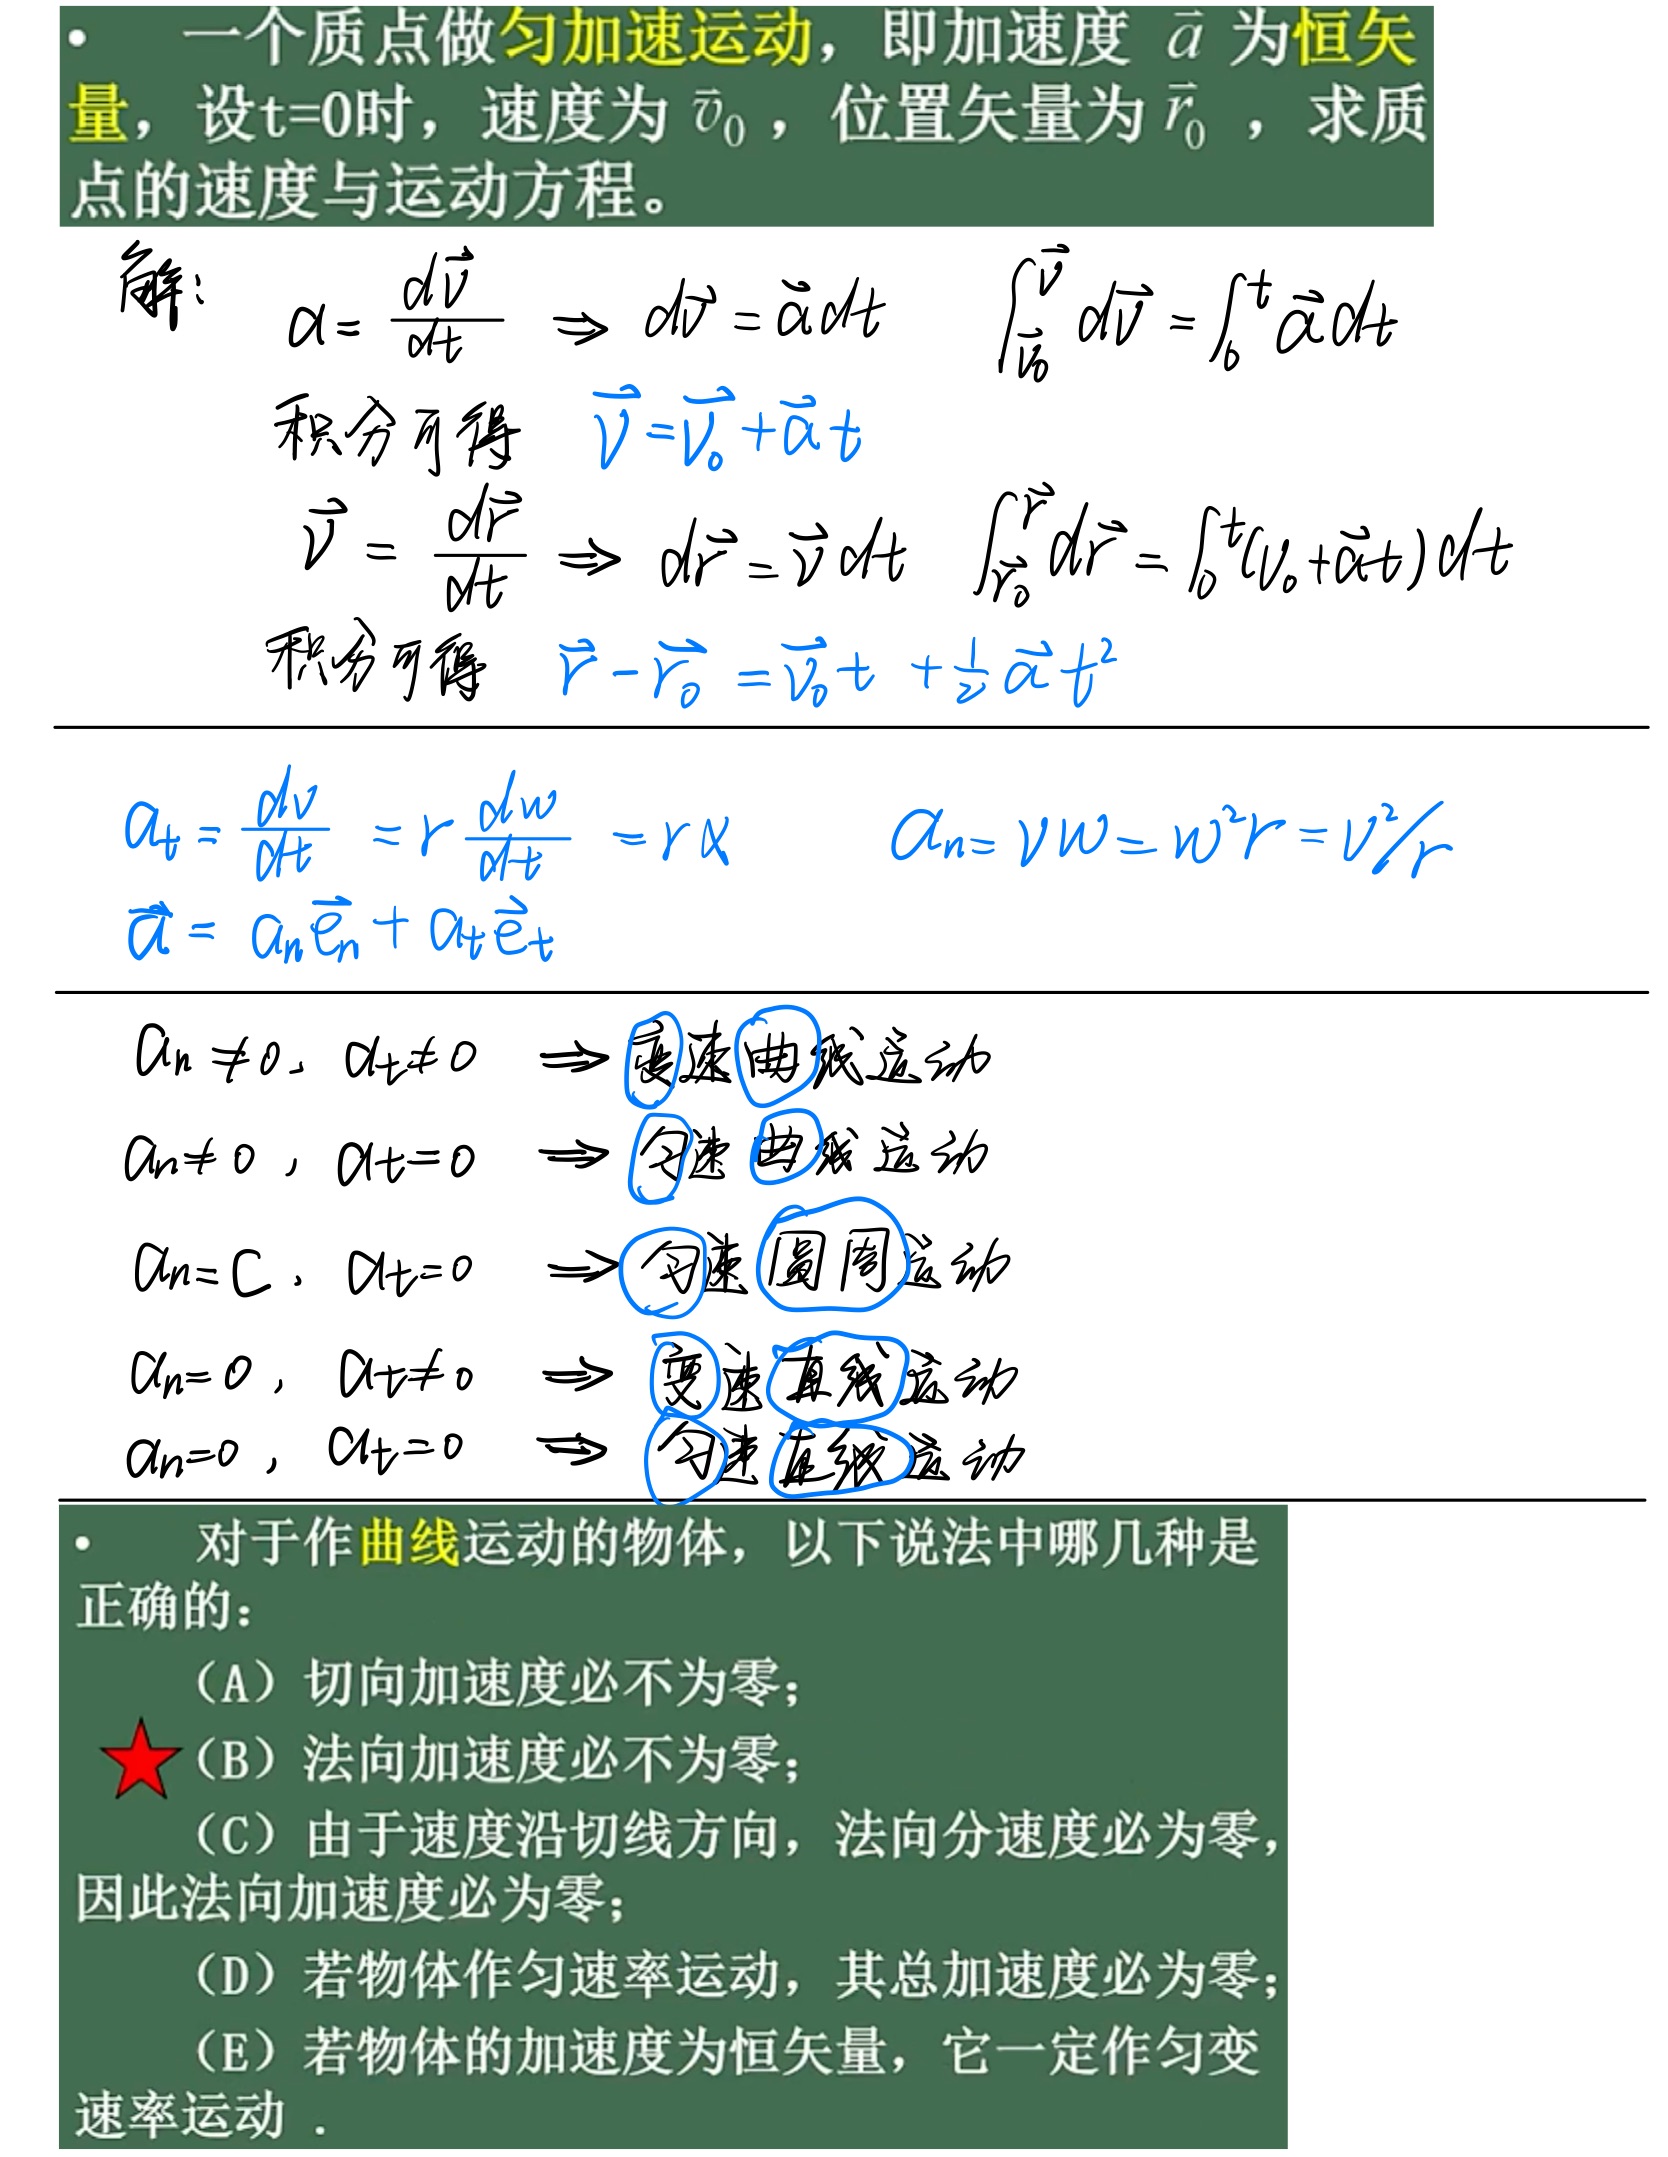 • 一个质点做匀加速运动，即加速度 a⃗ 为恒矢
量，设t=0时，速度为 v⃗₀ ，位置矢量为 r⃗₀ ，求质
点的速度与运动方程。
解: a = dv⃗/dt ⇒ dv⃗ = a⃗dt ∫_{v⃗₀}^{v⃗} dv⃗ = ∫₀^t a⃗dt
积分可得 v⃗ = v⃗₀ + a⃗t
v⃗ = dr⃗/dt ⇒ dr⃗ = v⃗dt ∫_{r⃗₀}^{r⃗} dr⃗ = ∫₀^t (v₀+a⃗t)dt
积分可得 r⃗ - r⃗₀ = v⃗₀t + ½a⃗t²
a_t = dv/dt = r dw/dt = rα a_n = vw = w²r = v²/r
a⃗ = a_n e⃗_n + a_t e⃗_t
a_n ≠ 0、a_t ≠ 0 ⇒ 变速曲线运动
a_n ≠ 0，a_t = 0 ⇒ 匀速曲线运动
a_n = C、a_t = 0 ⇒ 匀速圆周运动
a_n = 0，a_t ≠ 0 ⇒ 变速直线运动
a_n = 0，a_t = 0 ⇒ 匀速直线运动
• 对于作曲线运动的物体，以下说法中哪几种是
正确的：
（A）切向加速度必不为零；
（B）法向加速度必不为零；
（C）由于速度沿切线方向，法向分速度必为零，
因此法向加速度必为零；
（D）若物体作匀速率运动，其总加速度必为零；
（E）若物体的加速度为恒矢量，它一定作匀变
速率运动 .